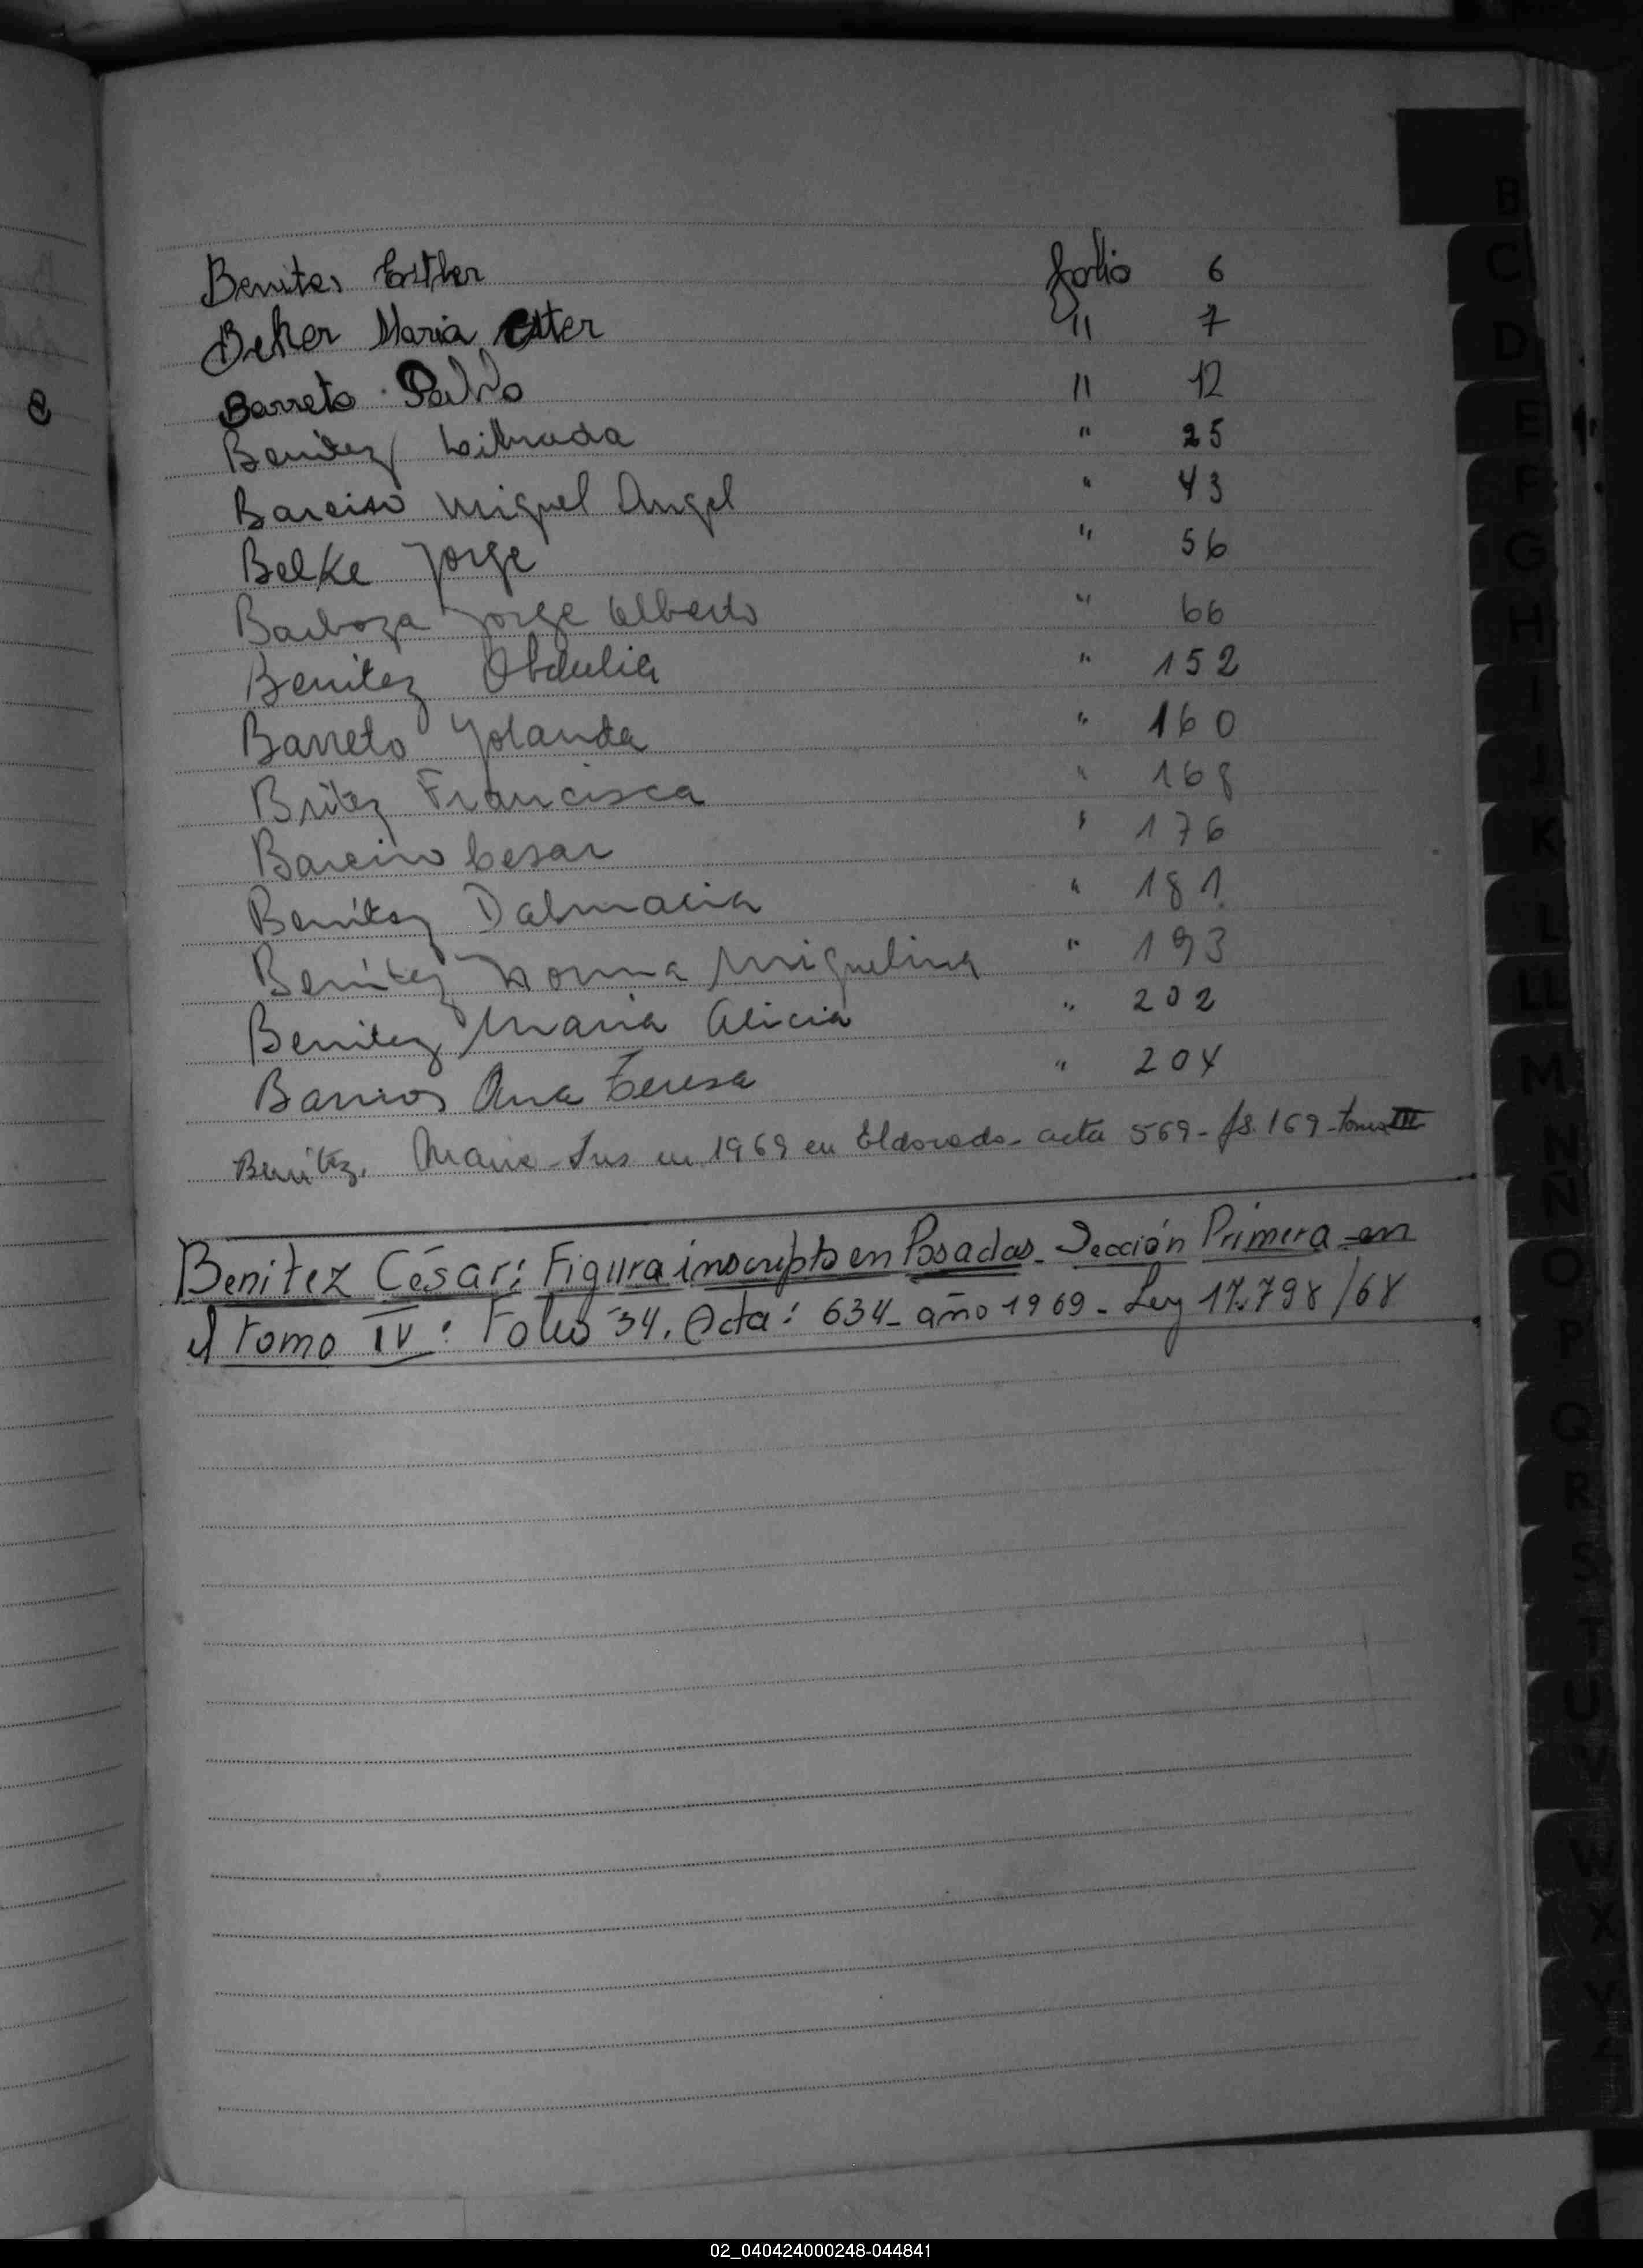 Benites Esther folio 6
Beker Maria Ester " 7
Barreto Pablo " 12
Benitez Librada " 25
Bareiro Miguel Angel " 43
Belke Jorge " 56
Barboza Jorge Alberto " 66
Benitez Obdulia " 152
Barreto Yolanda " 160
Britez Francisca " 168
Bareiro Cesar " 176
Benítez Dalmacia " 181
Benítez Norma Miguelina " 193
Benitez Maria Alicia " 202
Barrios Ana Teresa " 204
Benítez, Maria - Ins en 1969 en Eldorado - acta 569 - fs. 169 - tomo III
Benitez César: Figura inscripto en Posadas - Sección Primera en
el Tomo IV: Folio 34. Acta: 634 - año 1969 - Ley 17.798/68
B
C
D
E
F
G
H
I
J
K
L
LL
M
N
Ñ
O
P
Q
R
S
T
U
V
W
X
Y
02_040424000248-044841